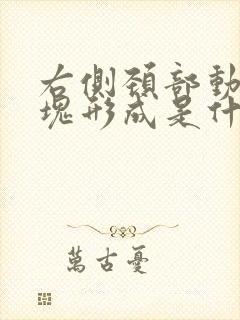 右側頚部動
塊形成是什
萬古憂